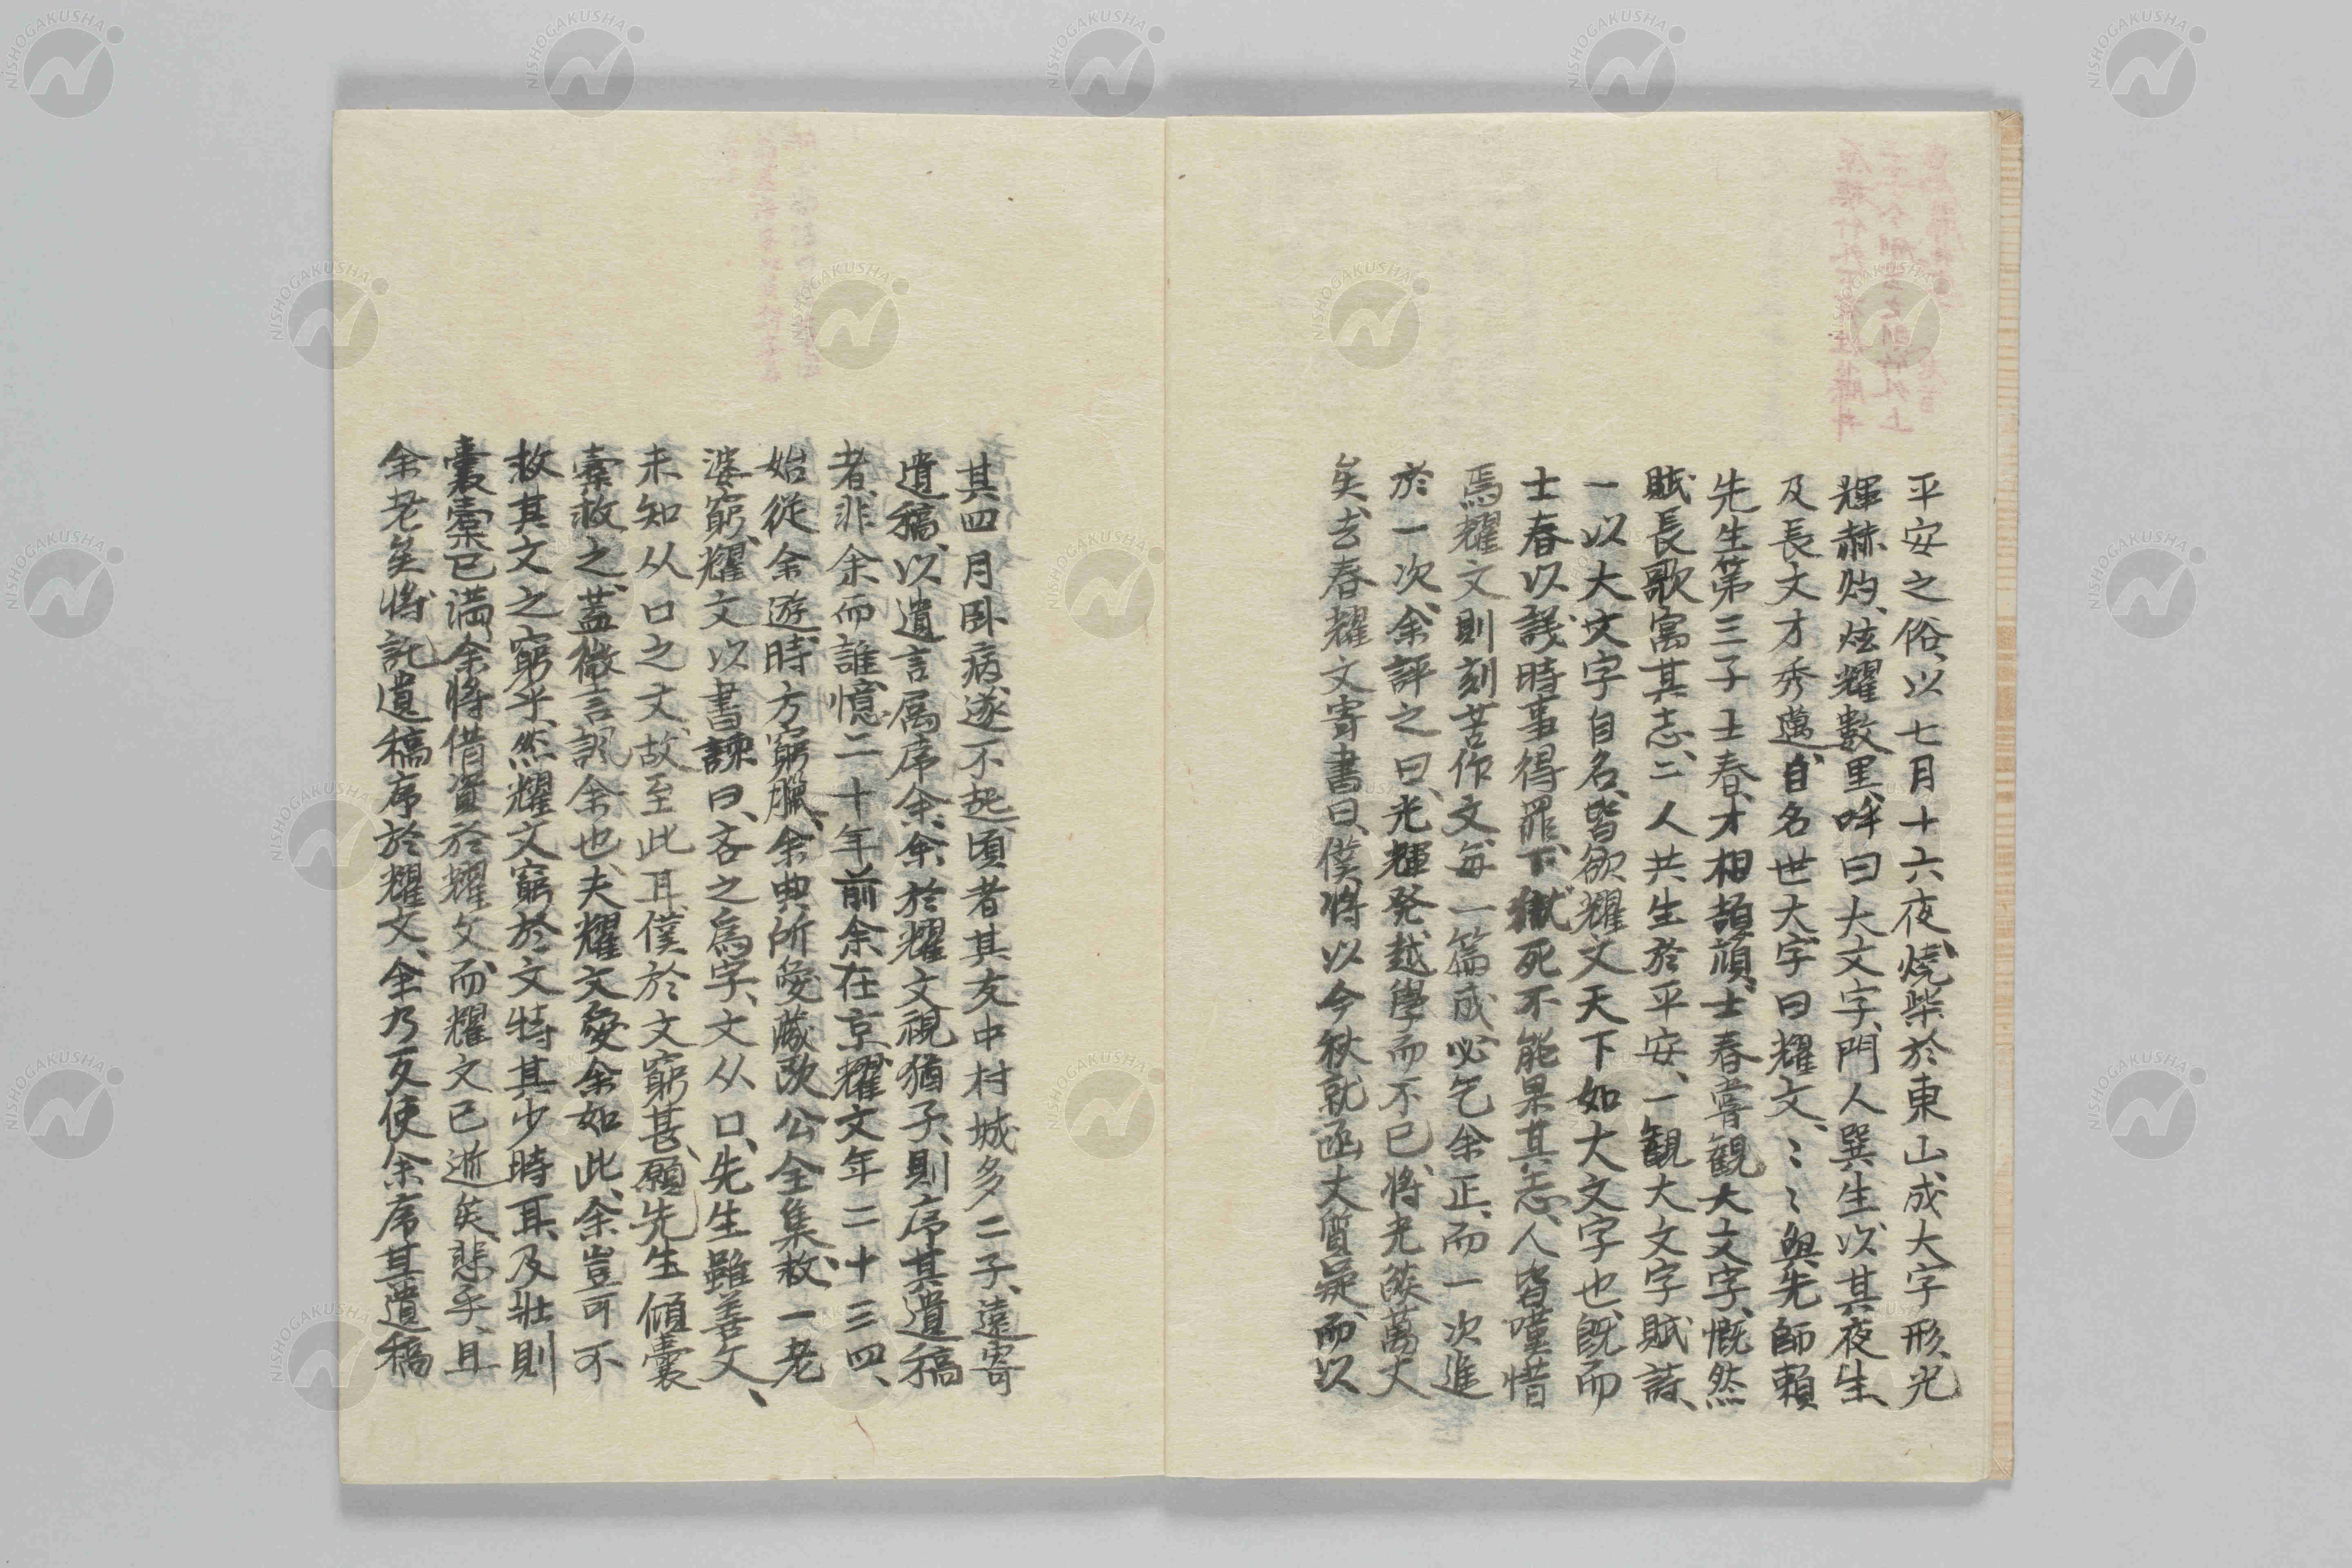 平安之俗、以七月十六夜、燒柴於東山、成大字形、光
輝赫灼、炫耀數里、呼曰大文字、門人巽生、以其夜生、
及長文才秀邁、自名世大、字曰耀文、〻〻與先師賴
先生第三子士春、才相頡頏、士春嘗観大文字、慨然
賦長歌寓其志、二人共生於平安、一観大文字賦詩、
一以大文字自名、皆欲耀文天下如大文字也、既而
士春以議時事得罪、下獄死不能果其志、人皆嘆惜
焉、耀文則刻苦作文、每一篇成、必乞余正、而一次進
於一次、余評之曰、光輝発越、學而不已、將光燄萬丈
矣、去春耀文寄書曰、僕將以今秋就函丈質疑、而以
其四月臥病遂不起、頃者其友中村城多二子、遠寄
遺稿、以遺言属序余、余於耀文視猶子、則序其遺稿
者、非余而誰、憶二十年前余在京、耀文年二十三四、
始從余遊、時方窮臘、余典所愛藏欧公全集、救一老
婆窮、耀文以書諫曰、吝之爲字、文从口、先生雖善文、
未知从口之文、故至此耳、僕於文窮甚、願先生傾囊
橐救之、蓋微言諷余也、夫耀文愛余如此、余豈可不
救其文之窮乎、然耀文窮於文特其少時耳、及壯則
囊橐已滿、余將借資於耀文、而耀文已逝矣、悲乎、且
余老矣、將託遺稿序於耀文、余乃反使余序其遺稿